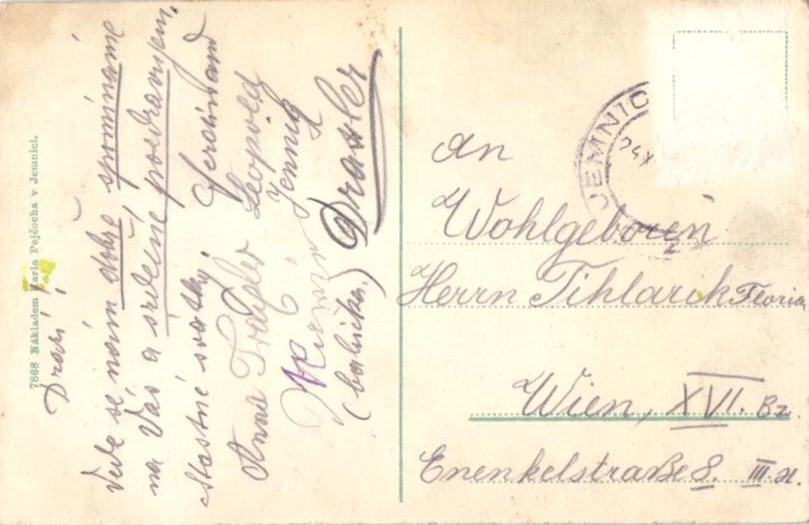 7868 Nákladem Karla Pejčocha v Jemnici.
Drazí!
Vede se nám dobře spomínáme
na Vás a srdečně pozdravujem.
šťastné svátky!
Ferdinand
Anna Leopold
Jennik
(babička) Draxler
JEMNIC
24 X
An
Wohlgeboren
Herrn Tihlarik Florian
Wien, XVI. Bz.
Enenkelstraße 8. III. St.